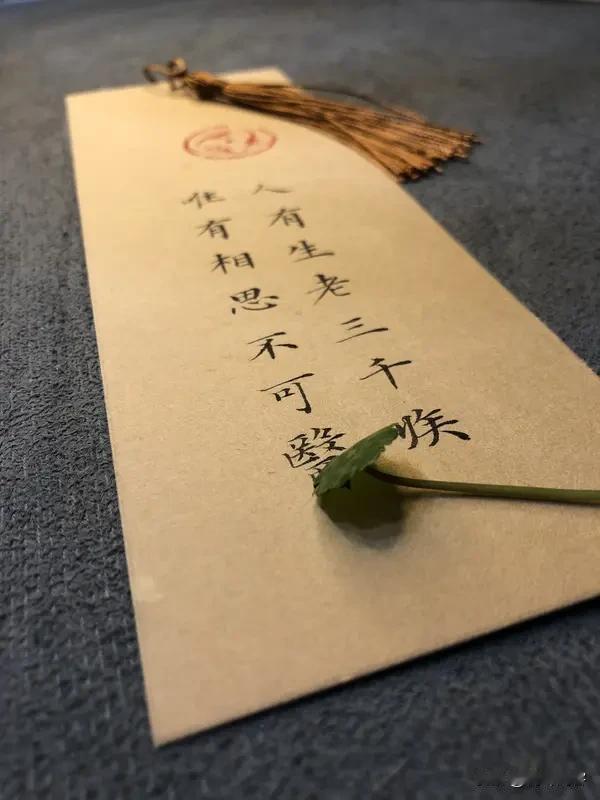 人有生老三千疾
有相思不可醫